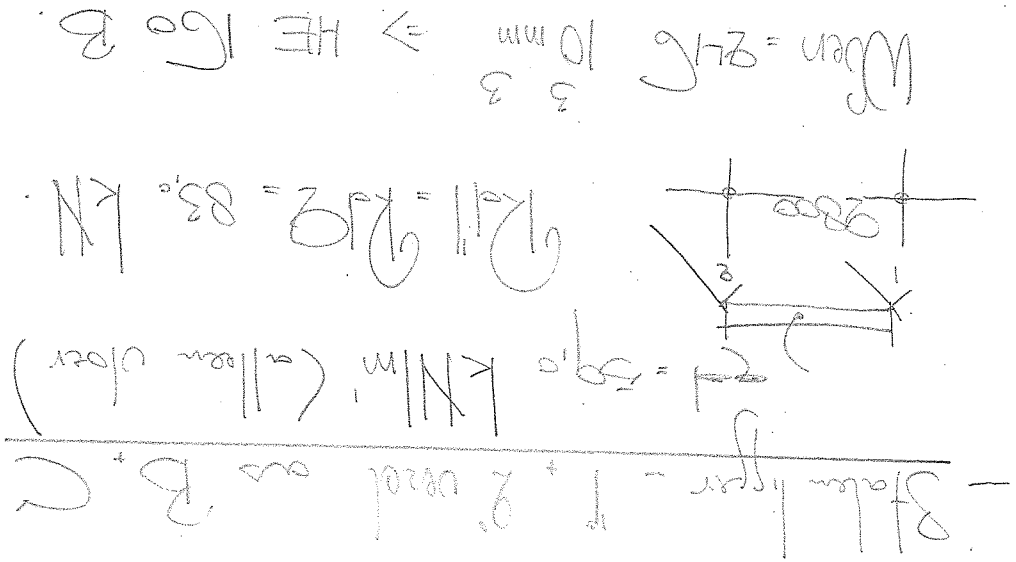 - Stalen ligger - 1e + 2e verd as B + C
qd = 59,0 kN/m' (alleen vloer)
1 2
2800
Rd1 = Rd2 = 83,0 kN.
Wben = 246 10³ mm³ => HE 160 B.